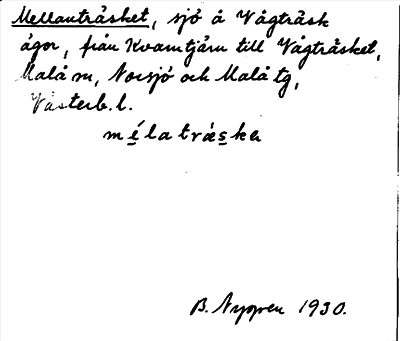 Mellanträsket, sjö å Vägträsk
ägor, från Kvarntjärn till Vägträsket,
Malå sn, Norsjö och Malå tg,
Västerb. l.
mélatrӕska
B. Nygren 1930.